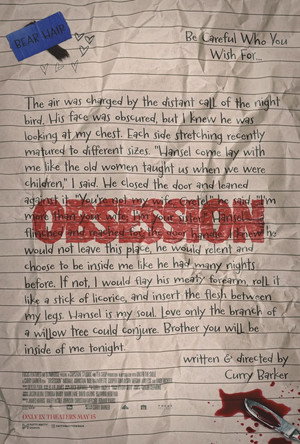 BEAR HAIR
Be Careful Who You
Wish For...
The air was charged by the distant call of the night
bird. His face was obscured, but I knew he was
looking at my chest. Each side stretching recently
matured to different sizes. "Hansel come lay with
me like the old women taught us when we were
children," I said. He closed the door and leaned
against
than your wife. I'm your sister Hansel
flinched and
OBSESSION
would not leave this place, he would relent and
choose to be inside me like he had many nights
before. If not, I would flay his meaty forearm roll it
like a stick of licorice, and insert the flesh between
my legs. Hansel is my soul. Love only the branch of
a willow tree could conjure. Brother you will be
inside of me tonight.
written & directed by
Curry Barker
ONLY IN THEATERS MAY 15